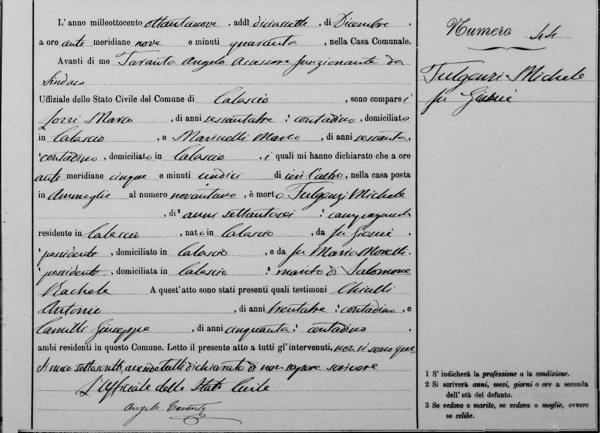 L'anno milleottocento ottantanove, addì diciassette di Dicembre,
a ore anti meridiane nove e minuti quaranta, nella Casa Comunale.
Avanti di me Taranta Angelo Assessore funzionante da
Sindaco
Uffiziale dello Stato Civile del Comune di Calascio, sono comparsi
Marco, di anni sessantatre, contadino, domiciliato
in Calascio, e Marinelli Marco, di anni sessanta,
contadino, domiciliato in Calascio, i quali mi hanno dichiarato che a ore
anti meridiane cinque e minuti undici di ieri l'altro, nella casa posta
in al numero novantuno, è morto Fulgenzi Michele
, di anni settantasei,
residente in Calascio, nato in Calascio, da fu Giosuè
possidente, domiciliato in Calascio, e da fu Maria Moretti
possidente, domiciliata in Calascio, marito di Salomone
Rachele A quest'atto sono stati presenti quali testimoni
Antonio, di anni trentatre, contadino, e
Giuseppe, di anni cinquanta, contadino,
ambi residenti in questo Comune. Letto il presente atto a tutti gl'intervenuti, non si sono que
sti meco sottoscritti, avendo tutti dichiarato di non sapere scrivere
L'Uffiziale dello Stato Civile
Angelo Taranta
Numero 44
Fulgenzi Michele
fu Giosuè
1 S' indicherà la professione o la condizione.
2 Si scriverà anni, mesi, giorni o ore a seconda
dell'età del defunto.
3 Se vedovo o marito, se vedova o moglie, ovvero
se celibe.